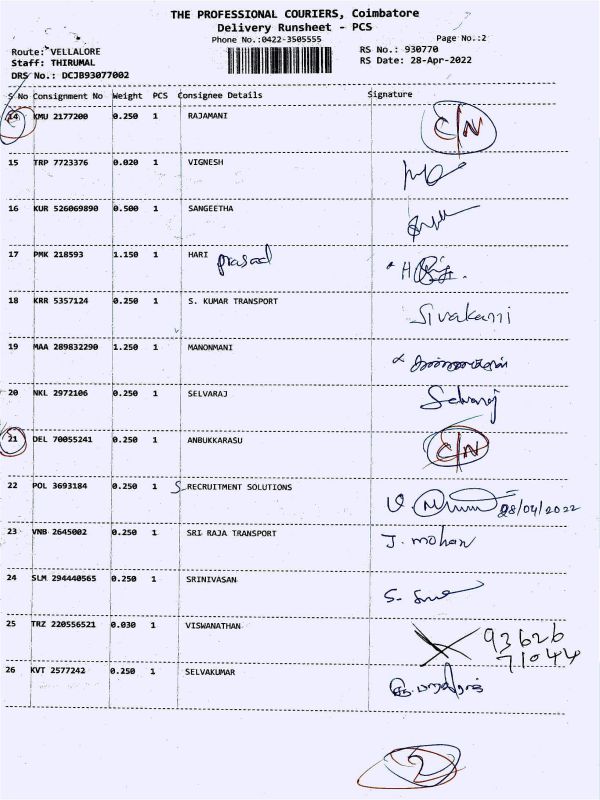 THE PROFESSIONAL COURIERS, Coimbatore
Delivery Runsheet - PCS
Phone No.:0422-3505555 Page No.:2
Route: VELLALORE RS No.: 930770
Staff: THIRUMAL RS Date: 28-Apr-2022
DRS No.: DCJB93077002
S No Consignment No Weight PCS Consignee Details Signature
14 KMU 2177200 0.250 1 RAJAMANI C/N
15 TRP 7723376 0.020 1 VIGNESH
16 KUR 526069890 0.500 1 SANGEETHA
17 PMK 218593 1.150 1 HARI prasad
18 KRR 5357124 0.250 1 S. KUMAR TRANSPORT Sivakami
19 MAA 289832290 1.250 1 MANONMANI
20 NKL 2972106 0.250 1 SELVARAJ Selvaraj
21 DEL 70055241 0.250 1 ANBUKKARASU C/N
22 POL 3693184 0.250 1 RECRUITMENT SOLUTIONS 28/04/2022
23 VNB 2645002 0.250 1 SRI RAJA TRANSPORT J. mohan
24 SLM 294440565 0.250 1 SRINIVASAN
25 TRZ 220556521 0.030 1 VISWANATHAN 93626
71044
26 KVT 2577242 0.250 1 SELVAKUMAR
2